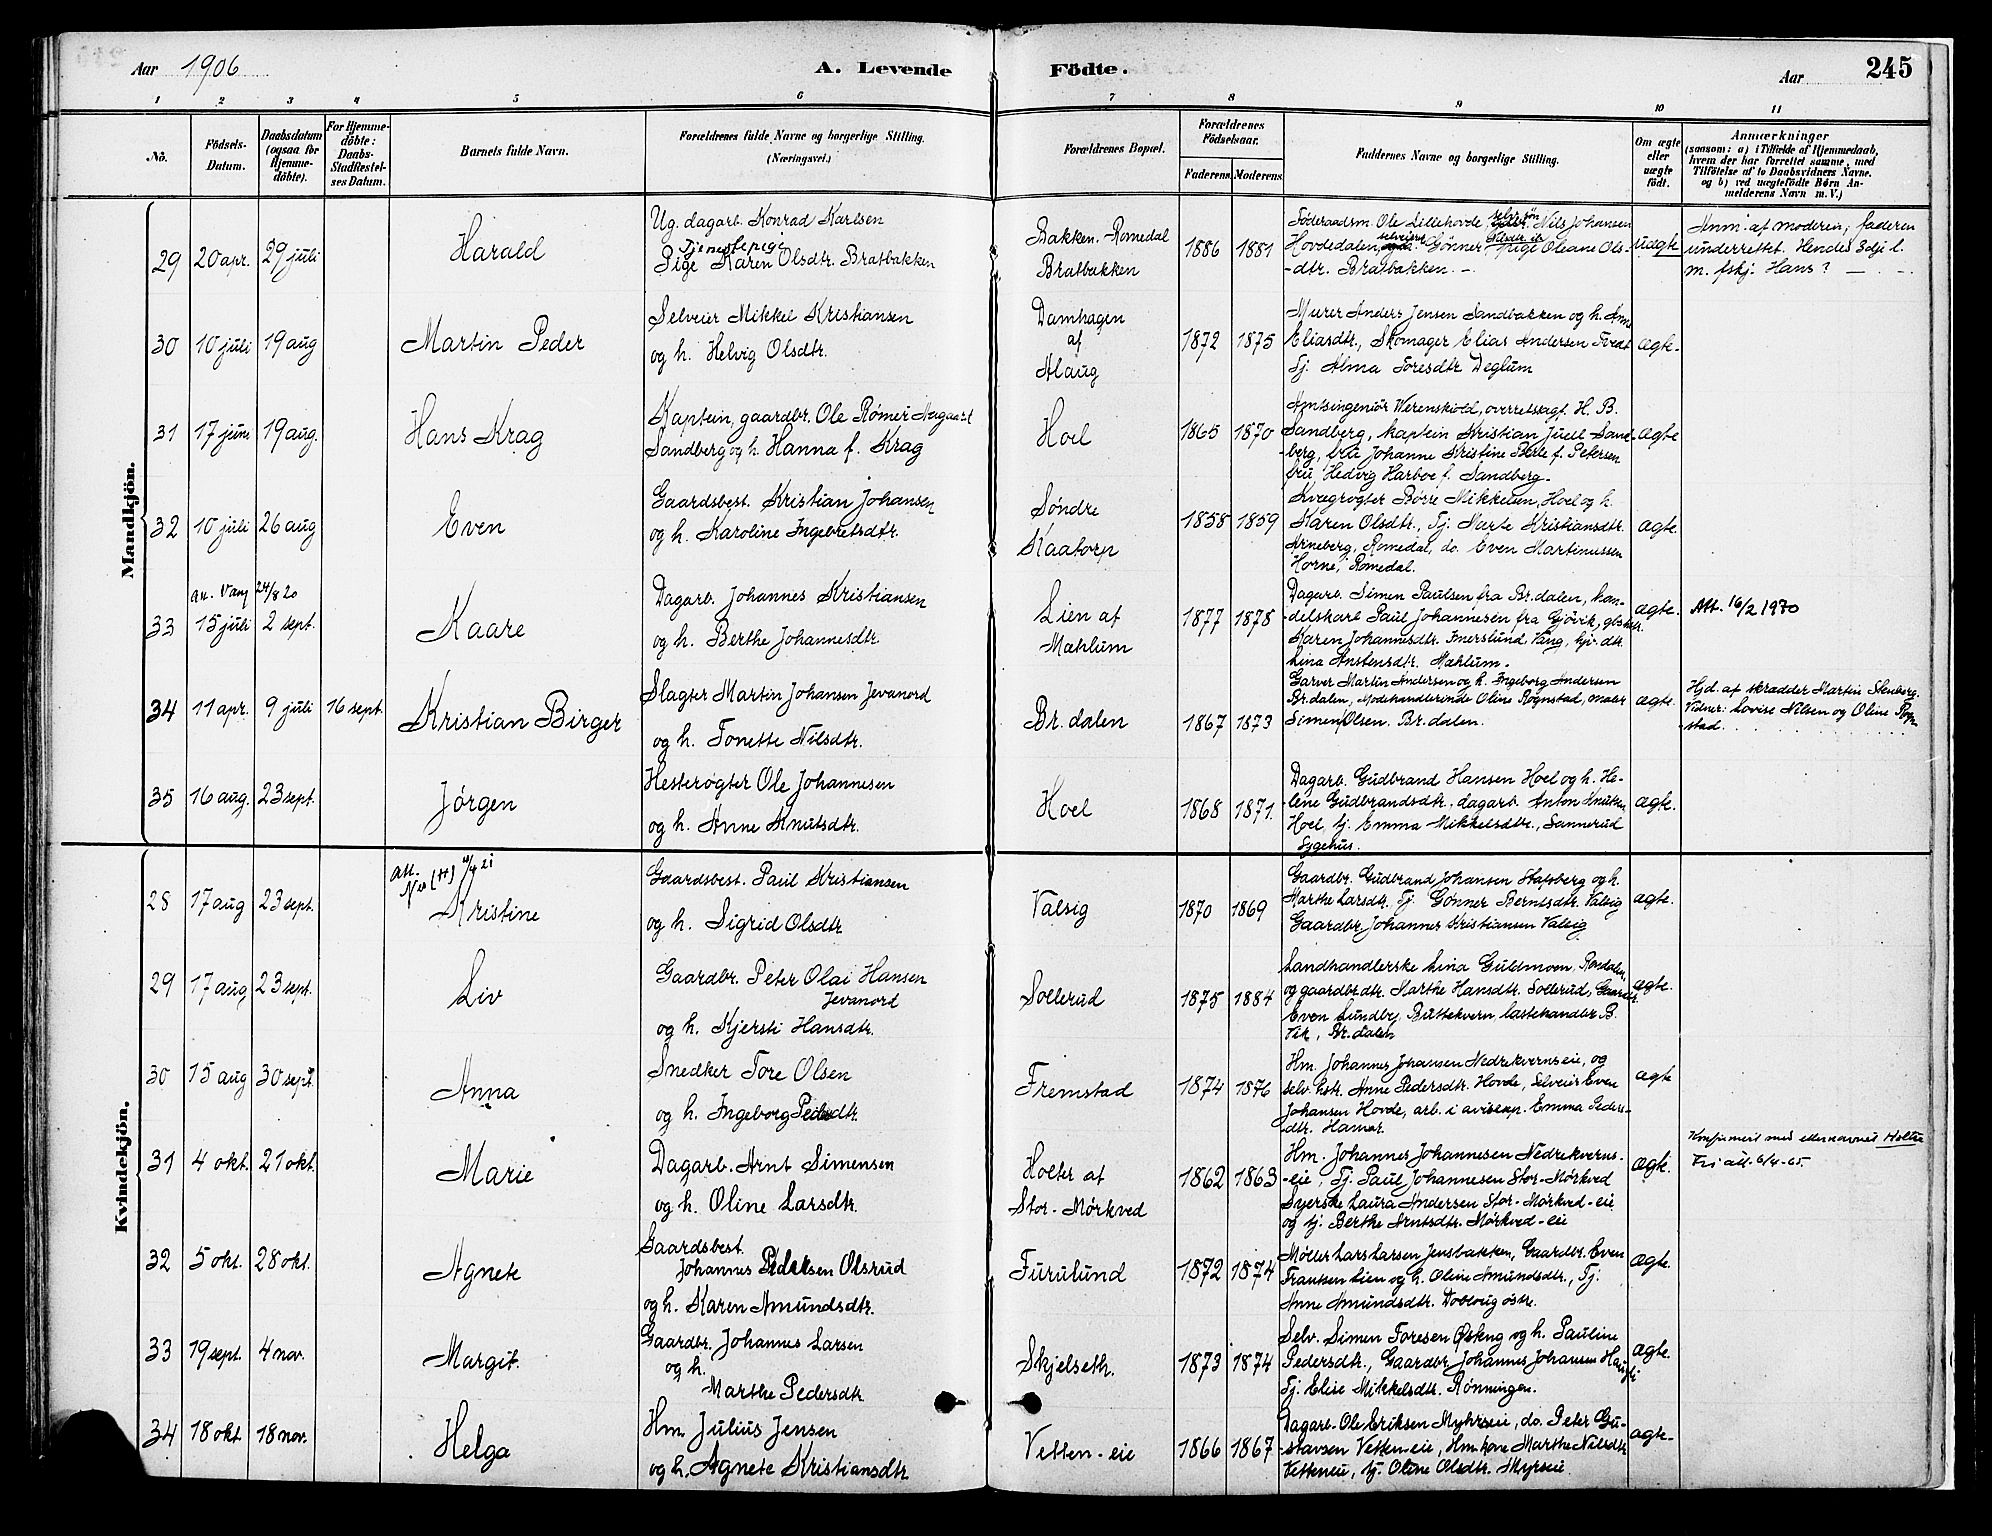 Aar 1906 A. Levende Födte. Aar 245
1 2 3 4 5 6 7 8 9 10 11
No. Födsels-Datum. Daabsdatum (ogsaa for Hjemmedöbte). For Hjemmedöbte: Daabs-Stadfæstelses Datum. Barnets fulde Navn. Forældrenes fulde Navne og borgerlige Stilling. (Næringsvei.) Forældrenes Bopæl. Forældrenes Födselsaar. Faderens Moderens Faddernes Navne og borgerlige Stilling. Om ægte eller uægte födt. Anmærkninger (saasom: a) i Tilfælde af Hjemmedaab, hvem der har forrettet samme, med Tilföielse af to Daabsvidners Navne. og b) ved uægtefödte Börn Anmelderens Navn m. V.)
Mandkjön.
29 20 apr. 29 juli Harald
Ug. dagarb. Konrad Karlsen
Tjenestepige
Pige Karen Olsdtr. Bratbakken
Bakken. Romedal
Bratbakken
1886 1881
Föderaadsm. Ole Lillehovde, Nils Johansen
Hovdedalen, Gønner pige Oleane Ols-
-dtr. Bratbakken. -
uægte
Anm. af moderen, faderen
underrettet. Hendes 3dje l.
m. fskj. Hans?
30 10 juli 19 aug Martin Peder
Selveier Mikkel Kristiansen
og h. Helvig Olsdtr.
Damhagen
af
Alaug
1872 1875
Murer Anders Jensen Sandbakken og h. Anne
Eliasdtr., Skomager Elias Andersen Tvedt
Tj. Alma Toresdtr Deglum
ægte.
31 17 juni 19 aug. Hans Krag
Kaptein, gaardbr. Ole Rømer Aagaart
Sandberg og h. Hanna f. Krag
Hoel
1865 1870
Amtsingeniör Werenskiold, overretssagf. H. B.
Sandberg, kaptein Kristian Juell Sand-
-berg, frue Johanne Kristine f. Petersen
fru Hedvig Harboe f. Sandberg.
ægte
32 10 juli 26 aug Even
Gaardsbest. Kristian Johansen
og h. Karoline Ingebretsdtr.
Søndre
Kaatorp
1858 1859
Kvægrøgter Börre Mikkelsen, Hoel og h.
Karen Olsdtr., Tj. Marte Kristiansdtr.
Arneberg, Romedal, do. Even Martinussen
Horne, Romedal.
ægte.
att. Vang 24/8 20
33 15 juli 2 sept. Kaare
Dagarb. Johannes Kristiansen
og h. Berthe Johannesdtr.
Lien af
Mæhlum
1877 1878
Dagarb. Simen Paulsen fra Br.dalen, han-
-delskarl Paul Johannesen fra Gjövik,
Karen Johannesdtr. Imerslund, Vang, dtr.
Lina Anstensdtr. Mæhlum.
ægte.
Att. 16/2 1970
34 11 apr. 9 juli 16 sept. Kristian Birger
Slagter Martin Johansen Jevanord
og h. Tonette Nilsdtr.
Br.dalen
1867 1873
Garver Martin Andersen og h. Ingeborg Andersen
Br.dalen, Modehandlerinde Oline Rognstad, maler
Simen Olsen. Br.dalen.
ægte.
Hjd. af skrædder Martin Stenberg.
Vidner: Lovise Nilsen og Oline Rogn-
-stad.
35 16 aug. 23 sept. Jörgen
Hesterøgter Ole Johannesen
og h. Anne Knutsdtr.
Hoel
1868 1871.
Dagarb. Gudbrand Hansen Hoel og h. He-
-lene Gudbrandsdtr., dagarb. Anton Knutsen
Hoel, tj. Emma Mikkelsdtr., Sannerud
Sygehus.
ægte.
Kvindekjön.
att.
28 17 aug 23 sept. Kristine
Gaardsbest. Paul Kristiansen
og h. Sigrid Olsdtr.
Valsig
1870 1869
Gaardbr. Gudbrand Johansen Stafsberg og h.
Marthe Larsdtr. Tj. Gønner Berntsdtr. Valsig
Gaardbr. Johannes Kristiansen Valsig.
ægte.
29 17 aug. 23 sept. Liv
Gaardbr. Peter Olai Hansen
Jevanord
og h. Kjersti Hansdtr.
Sollerud
1875 1884
Landhandlerske Lina Guldmoen, Romdalen,
og gaardbrdtr. Marthe Hansdtr. Sollerud, Gaardbr.
Even Lundby, Buttekvern, læstehandler B.
Vik, Br.dalen
ægte.
30 15 aug 30 sept. Anna
Snedker Tore Olsen
og h. Ingeborg Pedersdtr.
Fremstad
1874 1876
Hm. Johannes Johansen Nedrekvernseie, og
selv. hstr. Anne Pedersdtr. Hovde, Selveier Even
Johansen Hovde, arb. i avisexp. Emma Peders-
dtr. Hamar.
ægte
31 4 okt. 21 okt. Marie
Dagarb. Arnt Simensen
og h. Oline Larsdtr.
Holter af
Stor-Mørkved
1862 1863
Hm. Johannes Johannesen Nedrekverns-
-eie, Tj. Paul Johannesen Stor-Mörkved
Syerske Laura Andersen Stor-Mörkved-eie
og tj. Berthe Arntsdtr. Mörkved-eie
ægte.
Konfirmert med etternavnet Holter
Fri att. 6/4-65.
32 5 okt. 28 okt. Agnete
Gaardsbest.
Johannes Pedersen Olsrud
og h. Karen Amundsdtr.
Furulund
1872 1874
Møller Lars Larsen Jensbakken, Gaardbr. Even
Frantsen Lien og h. Oline Amundsdtr., Tj.
Anne Amundsdtr. Dobloug östre.
ægte.
33 19 sept. 4 nov. Margit.
Gaardbr. Johannes Larsen
og h.
Marthe Pedersdtr.
Skjelseth.
1873 1874
Selv. Simen Toresen Øskng og h. Pauline
Pedersdtr., Gaardbr Johannes Johansen Haugli
Tj. Elise Mikkelsdtr. Rönningen.
ægte.
34 18 okt. 18 nov. Helga
Hm. Julius Jensen
og h. Agnete Kristiansdtr.
Vetten-eie
1866 1867
Dagarb. Ole Eriksen Myhrseie, do. Peter Gu-
-stavsen Vetten-eie, Hm.kone Marthe Nilsdtr.
Vetteneie, tj. Oline Olsdtr. Myrseie.
ægte.